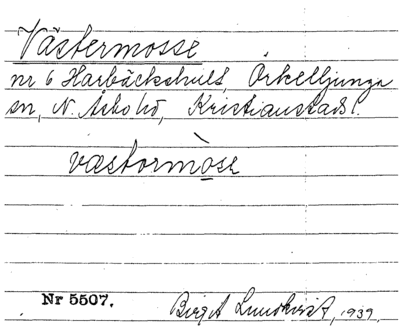 Västermosse
nr 6 Harbäckshult, Örkelljunga
sn, N. Åsbo hd, Kristianstads l.
væstormòse
Nr 5507.
Birgit Lundkvist, 1939.